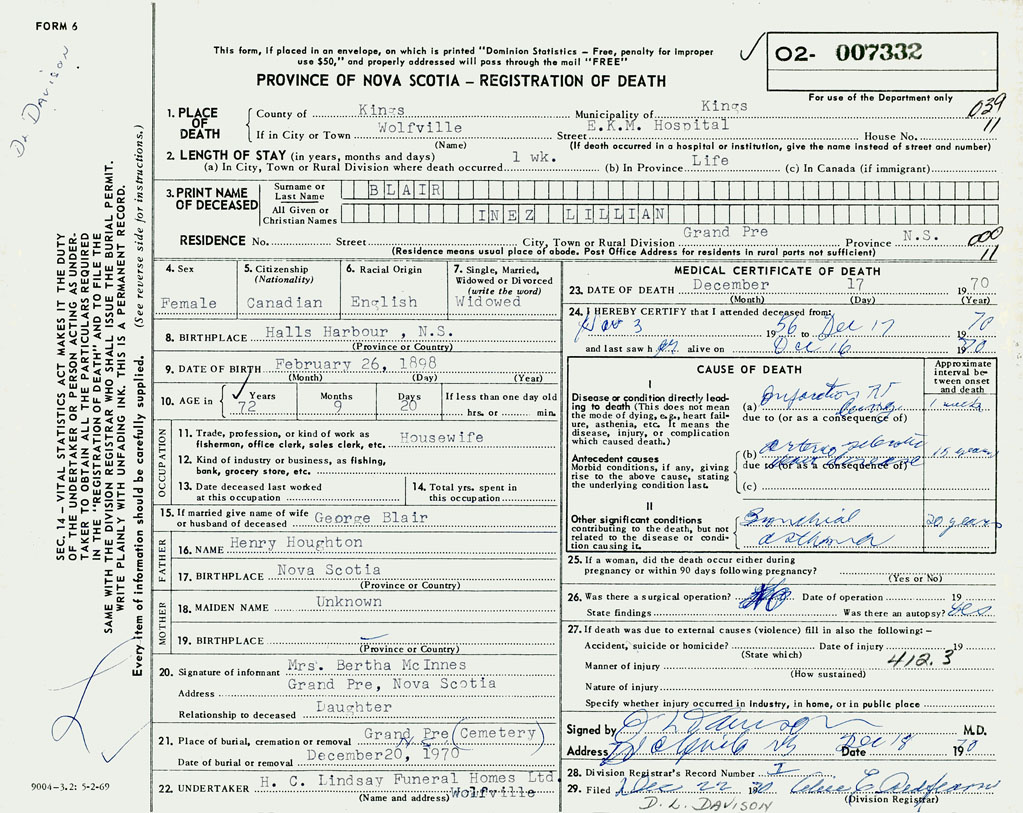 FORM 6
Dr Davison
This form, if placed in an envelope, on which is printed "Dominion Statistics – Free, penalty for improper
use $50," and properly addressed will pass through the mail "FREE"
PROVINCE OF NOVA SCOTIA – REGISTRATION OF DEATH
02- 007332
For use of the Department only
039
11
1. PLACE OF DEATH
County of Kings Municipality of Kings
If in City or Town Wolfville Street E.K.M. Hospital House No.
(Name) (If death occurred in a hospital or institution, give the name instead of street and number)
2. LENGTH OF STAY (in years, months and days) 1 wk. Life
(a) In City, Town or Rural Division where death occurred (b) In Province (c) In Canada (if immigrant)
3. PRINT NAME OF DECEASED
Surname or Last Name BLAIR
All Given or Christian Names INEZ LILLIAN
RESIDENCE No. Street City, Town or Rural Division Grand Pre Province N.S.
(Residence means usual place of abode. Post Office Address for residents in rural parts not sufficient)
000
11
4. Sex
Female
5. Citizenship
(Nationality)
Canadian
6. Racial Origin
English
7. Single, Married,
Widowed or Divorced
(write the word)
Widowed
8. BIRTHPLACE Halls Harbour , N.S.
(Province or Country)
9. DATE OF BIRTH February 26, 1898
(Month) (Day) (Year)
10. AGE in
Years 72
Months 9
Days 20
If less than one day old
hrs. or min.
OCCUPATION
11. Trade, profession, or kind of work as
fisherman, office clerk, sales clerk, etc. Housewife
12. Kind of industry or business, as fishing,
bank, grocery store, etc.
13. Date deceased last worked
at this occupation
14. Total yrs. spent in
this occupation
15. If married give name of wife
or husband of deceased George Blair
FATHER
16. NAME Henry Houghton
17. BIRTHPLACE Nova Scotia
(Province or Country)
MOTHER
18. MAIDEN NAME Unknown
19. BIRTHPLACE
(Province or Country)
20. Signature of informant Mrs. Bertha McInnes
Address Grand Pre, Nova Scotia
Relationship to deceased Daughter
21. Place of burial, cremation or removal Grand Pre (Cemetery)
N.S.
Date of burial or removal December20, 1970
22. UNDERTAKER H. C. Lindsay Funeral Homes Ltd.
(Name and address) Wolfville
MEDICAL CERTIFICATE OF DEATH
23. DATE OF DEATH December 17 1970
(Month) (Day) (Year)
24. I HEREBY CERTIFY that I attended deceased from:
Nov 3 1956 to Dec 17 1970
and last saw her alive on Dec 16 1970
CAUSE OF DEATH
Approximate
interval be-
tween onset
and death
I
Disease or condition directly lead-
ing to death (This does not mean
the mode of dying, e.g., heart fail-
ure, asthenia, etc. It means the
disease, injury, or complication
which caused death.)
(a) Infarction Rt Lung 1 week
due to (or as a consequence of)
Antecedent causes
Morbid conditions, if any, giving
rise to the above cause, stating
the underlying condition last.
(b) arteriosclerotic heart disease 15 years
due to (or as a consequence of)
(c)
II
Other significant conditions
contributing to the death, but not
related to the disease or condi-
tion causing it.
Bronchial 20 years
asthma
25. If a woman, did the death occur either during
pregnancy or within 90 days following pregnancy?
(Yes or No)
26. Was there a surgical operation? No Date of operation 19
State findings Was there an autopsy? Yes
27. If death was due to external causes (violence) fill in also the following: –
Accident, suicide or homicide? Date of injury 19
(State which) 412.3
Manner of injury
(How sustained)
Nature of injury
Specify whether injury occurred in Industry, in home, or in public place
Signed by D L Davison M.D.
Address Wolfville NS Date Dec 18 1970
28. Division Registrar's Record Number
29. Filed Dec 22 1970
(Division Registrar)
D. L. DAVISON
SEC. 14 – VITAL STATISTICS ACT MAKES IT THE DUTY
OF THE UNDERTAKER OR PERSON ACTING AS UNDER-
TAKER TO OBTAIN ALL THE PARTICULARS REQUIRED
IN THE "REGISTRATION OF DEATH" AND TO FILE THE
SAME WITH THE DIVISION REGISTRAR WHO SHALL ISSUE THE BURIAL PERMIT.
WRITE PLAINLY WITH UNFADING INK. THIS IS A PERMANENT RECORD.
Every item of information should be carefully supplied. (See reverse side for instructions.)
9004-3.2: 5-2-69